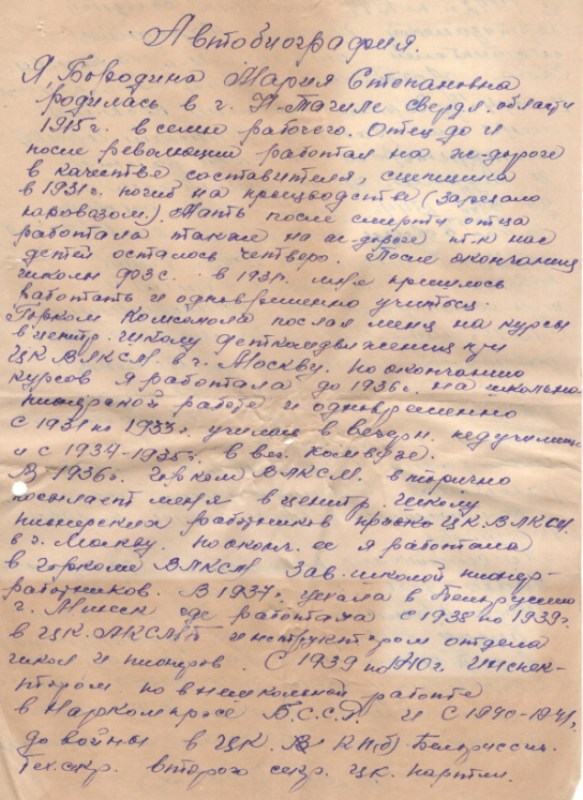 Автобиография.
Я, Бородина Мария Степановна
родилась в г. Н-Тагиле свердл. области
1915 г. в семье рабочего. Отец до и
после революции работал на ж-дороге
в качестве составителя, сцепщика
в 1931 г. погиб на производстве (зарезало
паровозом). Мать после смерти отца
работала также на ж-дороге т.к нас
детей осталось четверо. После окончания
школы ФЗС. в 1931. мне пришлось
работать и одновременно учиться.
Горком Комсомола послал меня на курсы
в центр. школу деткомдвижения при
ЦК ВЛКСМ в г. Москву. По окончанию
курсов я работала до 1936 г. на школьно
пионерской работе и одновременно
с 1931 по 1933 г. училась в вечерн. педучилище
и с 1934-1935 г. в веч. комвузе.
В 1936 г. горком ВЛКСМ. вторично
посылает меня в центр. школу
пионерских работников ЦК. ВЛКСМ.
в г. Москву. По оконч. ее я работала
в горкоме ВЛКСМ Зав. школой пионер-
работников. В 1937 г. уехала в Белоруссию
г. Минск где работала с 1938 по 1939 г.
в ЦК. ЛКСМБ инструктором отдела
школ и пионеров. С 1939 по 40 г. Инспек-
тором по внешкольной работе
в Наркомпросе Б.С.С.Р. и с 1940-1941,
до войны в ЦК. КП(б) Белоруссии.
Тех. секр. второго секр. ЦК. партии.